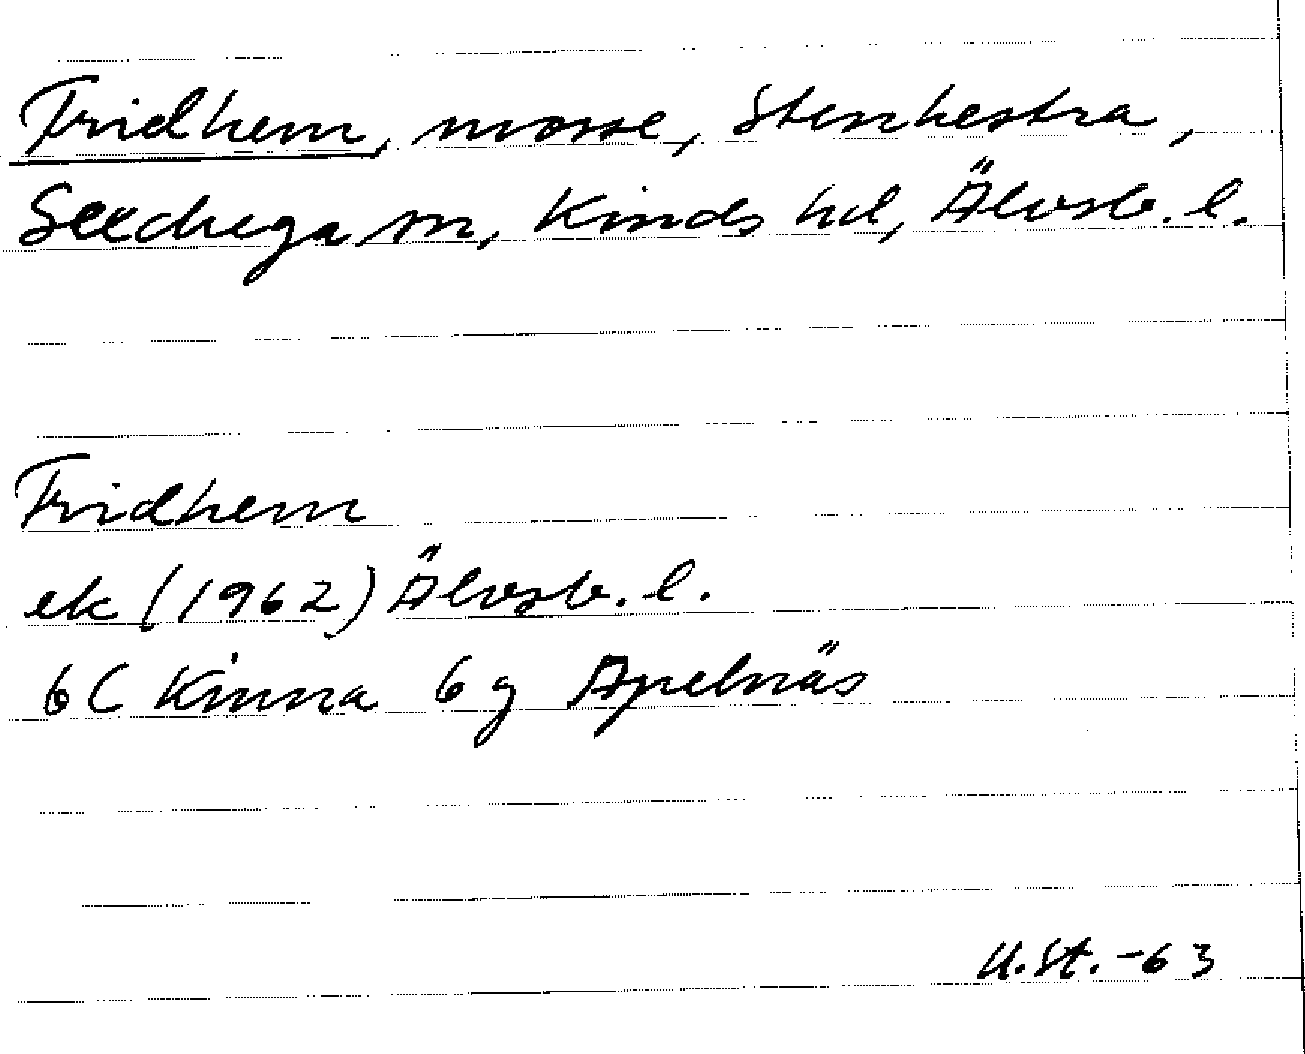 Fridhem, mosse, Stenhestra,
Seedugga sn, Kinds hd, Älvsb. l.
Fridhem
ek (1962) Älvsb. l.
6C Kinna 6g Apelnäs
U.St. -63